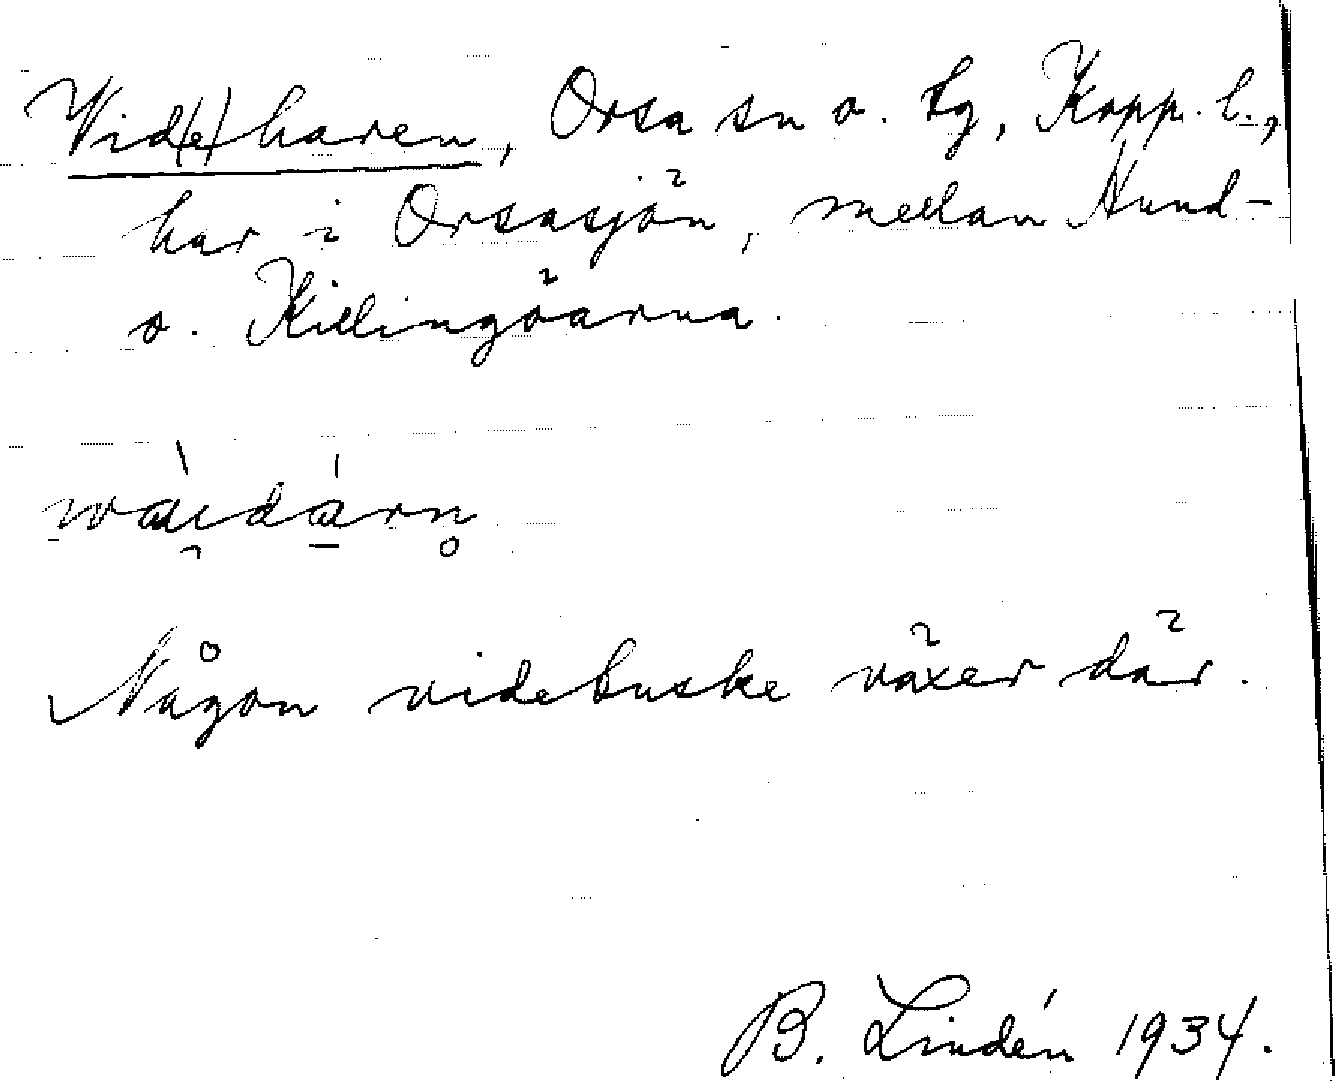 Vid(e)haren, Orsa sn o. tg, Kopp. l.,
har i Orsasjön, mellan Hund-
o. Killingöarna.
wàidárn̥
Någon videbuske växer där.
B. Lindén 1934.